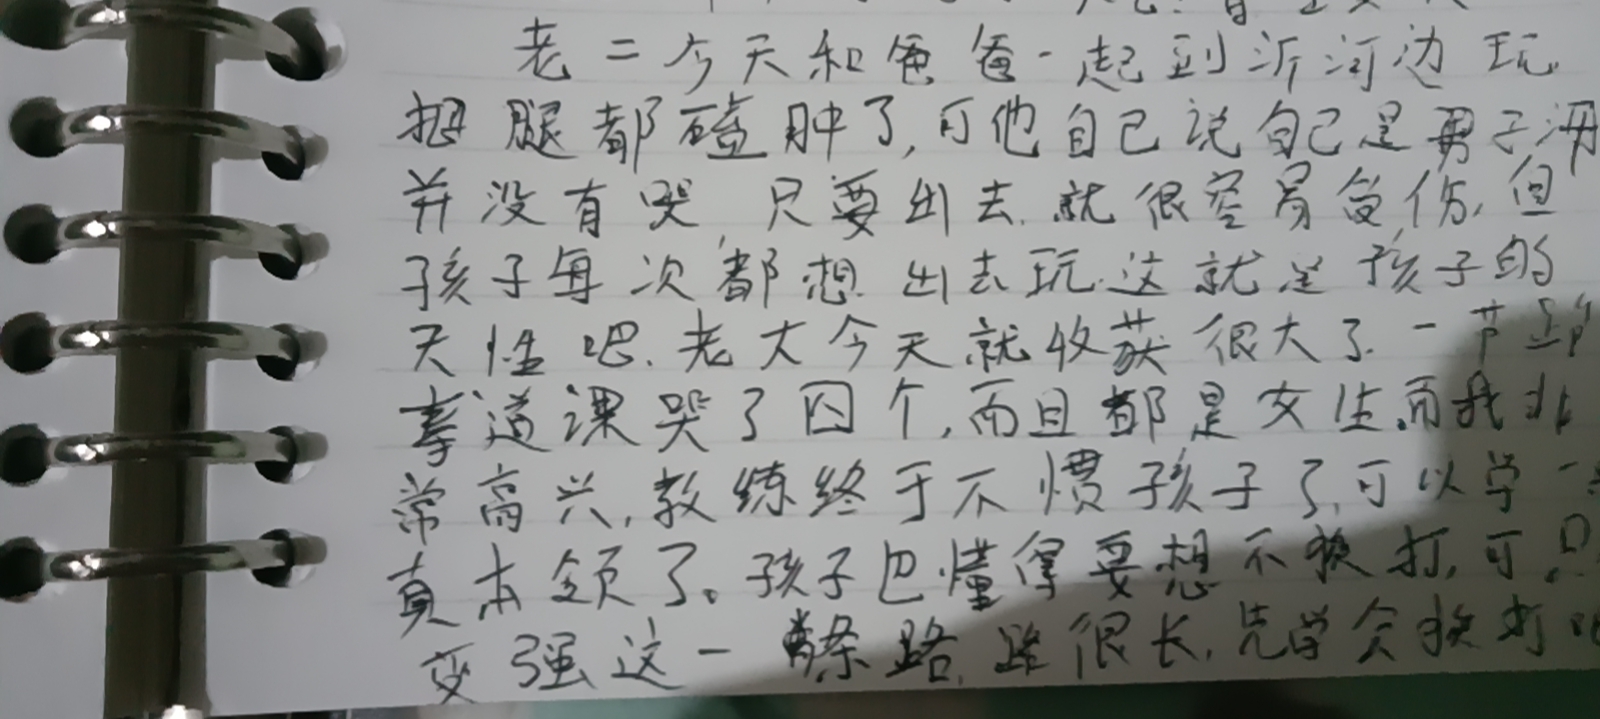 老二今天和爸爸一起到沂河边玩
把腿都磕肿了,可他自己说自己是男子汉
并没有哭,只要出去.就很容易受伤,但
孩子每次都想出去玩.这就是孩子的
天性吧.老大今天就收获很大了.一节跆
拳道课哭了四个,而且都是女生.而我非
常高兴,教练终于不惯孩子了,可以学一
真本领了。孩子也懂得要想不挨打,可只
变强这一条路,路很长,先学会挨打吧